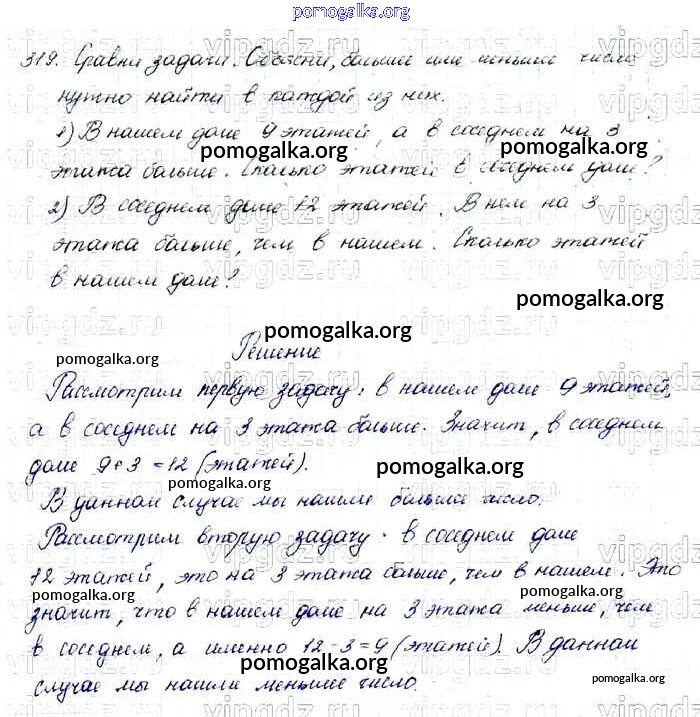 pomogalka.org
319. Сравни задачи. Объясни, большее или меньшее число
нужно найти в каждой из них.
1) В нашем доме 9 этажей, а в соседнем на 3
pomogalka.org pomogalka.org
этажа больше. Сколько этажей в соседнем доме?
2) В соседнем доме 12 этажей. В нем на 3
этажа больше, чем в нашем. Сколько этажей
в нашем доме?
pomogalka.org
pomogalka.org
Решение
pomogalka.org
Рассмотрим первую задачу: в нашем доме 9 этажей,
а в соседнем на 3 этажа больше. Значит, в соседнем
доме 9+3=12 (этажей).
pomogalka.org
В данном случае мы нашли большее число.
Рассмотрим вторую задачу: в соседнем доме
12 этажей, это на 3 этажа больше, чем в нашем. Это
pomogalka.org pomogalka.org
значит, что в нашем доме на 3 этажа меньше, чем
в соседнем, а именно 12-3=9 (этажей). В данном
pomogalka.org
случае мы нашли меньшее число.
pomogalka.org